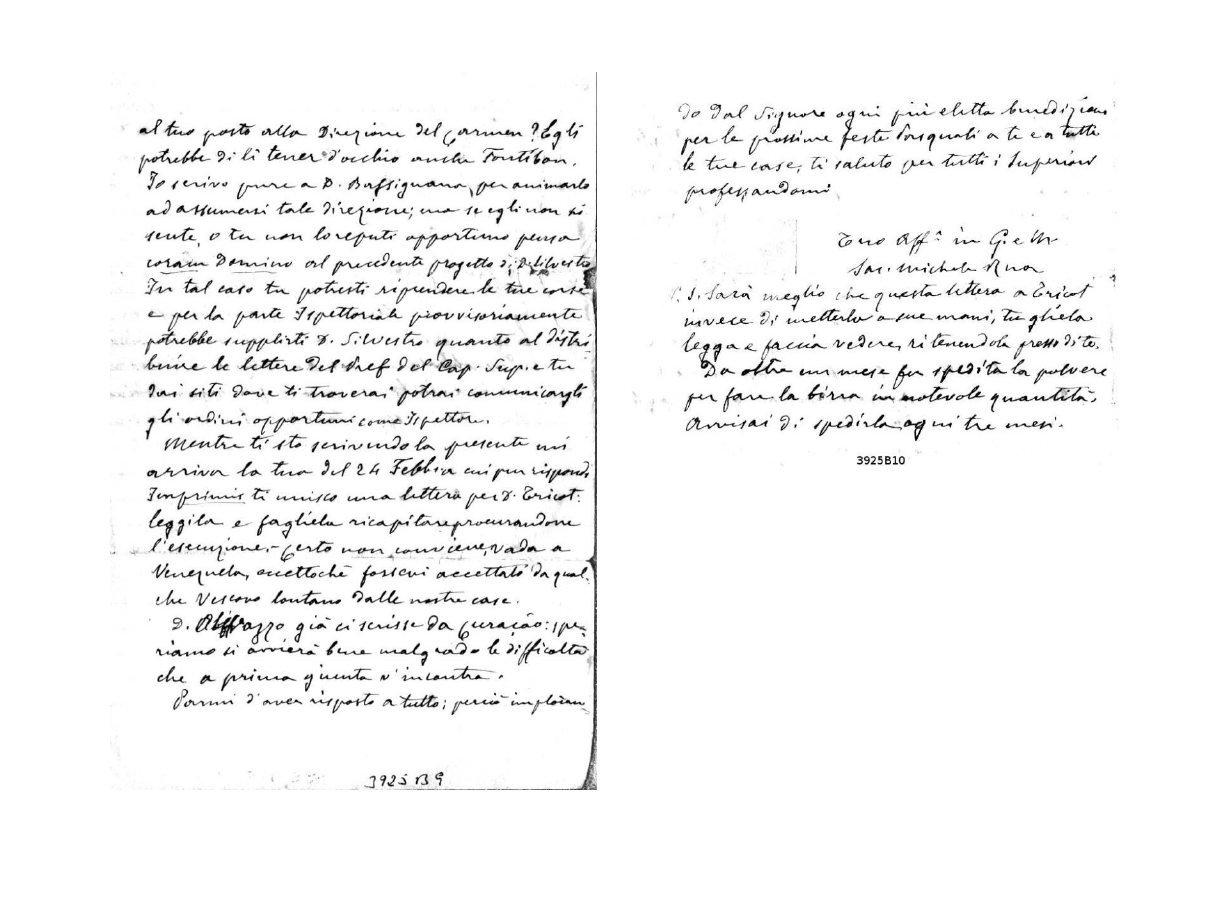 al tuo posto alla Direzione del Carmen? Egli
potrebbe di lì tener d'occhio anche Fontibon.
Io scrivo pure a D. Bassignana, per animarlo
ad assumersi tale direzione; ma se egli non si
sente, o tu non lo reputi opportuno pensa
coram Domino al precedente progetto di D. Silvestro
In tal caso tu potresti riprendere le tue corse
e per la parte Ispettoriale provvisoriamente
potrebbe supplirti D. Silvestro quanto al distri
buire le lettere del Pref del Cap. Sup. e tu
dai siti dove ti troverai potrai comunicargli
gli ordini opportuni come Ispettore.
Mentre ti sto scrivendo la presente mi
arriva la tua del 24 Febbra cui pur rispondo
Imprimis ti unisco una lettera per D. Tricot:
leggila e fagliela ricapitare procurandone
l'esecuzione. - Certo non conviene, vada a
Venezuela, eccettochè fossevi accettato da qual.
che Vescovo lontano dalle nostre case.
D. già ci scrisse da Curaçao: spe-
riamo si avvierà bene malgrado le difficoltà
che a prima giunta v'incontra.
Parmi d'aver risposto a tutto; perciò imploran
3925 B 9
do dal Signore ogni più eletta benedizione
per le prossime feste Pasquali a te e a tutte
le tue case, ti saluto per tutti i Superiori
professandomi
Tuo Aff.° in G. e M.
Sac. Michele Rua
P. S. Sarà meglio che questa lettera a Tricot
invece di metterla a sue mani, tu gliela
legga e faccia vedere, ritenendola presso di te.
Da oltre un mese fu spedita la polvere
per fare la birra in notevole quantità.
Avvisai di spedirla ogni tre mesi.
3925B10